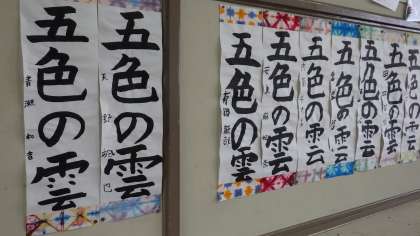 五色の雲
五色の雲
五色の雲
五色の雲
五色の雲
五色の雲
五色の雲
五色の雲
五色の雲